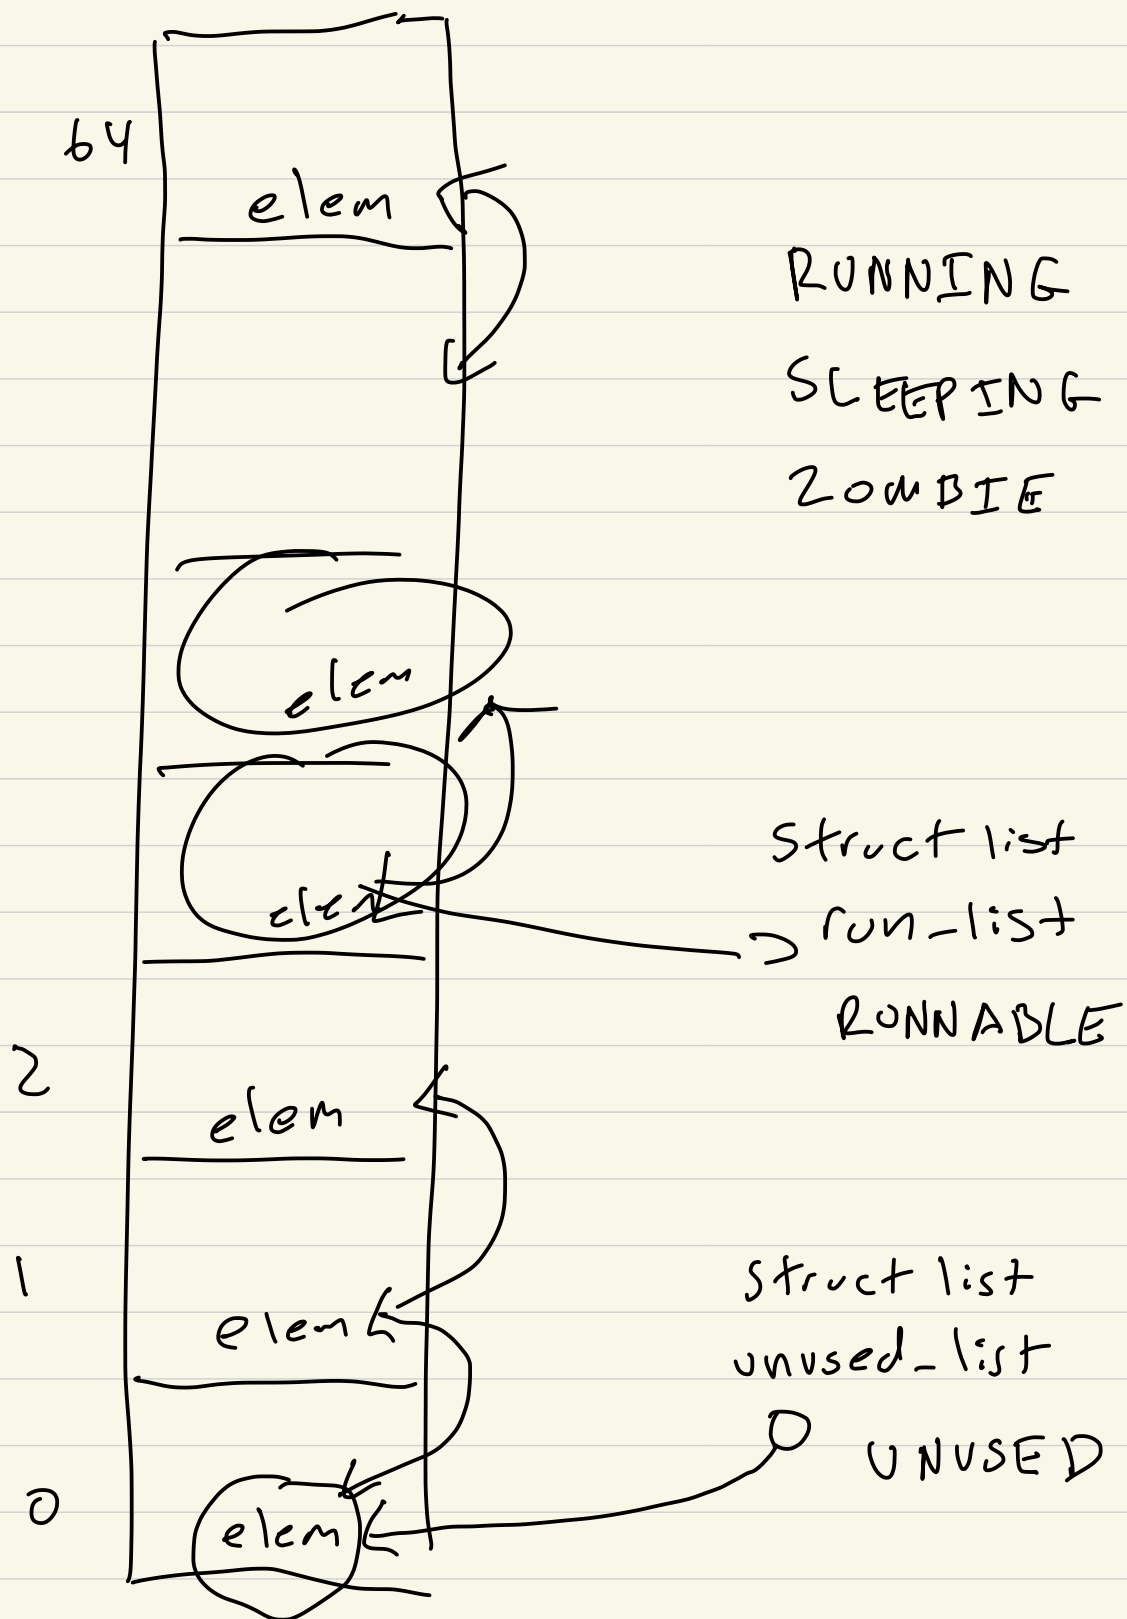 64
elem
RUNNING
SLEEPING
ZOMBIE
elem
elem
struct list
run_list
RUNNABLE
2
elem
1
elem
struct list
unused_list
UNUSED
0
elem